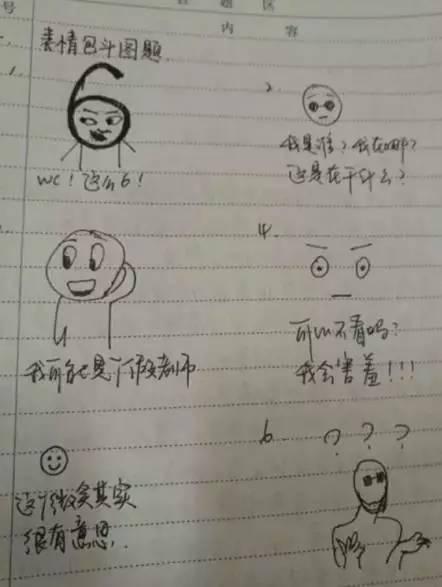 号 题 区
内 容
表情包斗图题.
1.
6
WC！这么6！
2.
我是谁？我在哪？
这是在干什么？
我可能是个假老师
4.
可以不看吗？
我会害羞！！！
这个微笑其实
很有意思.
6.
？？？